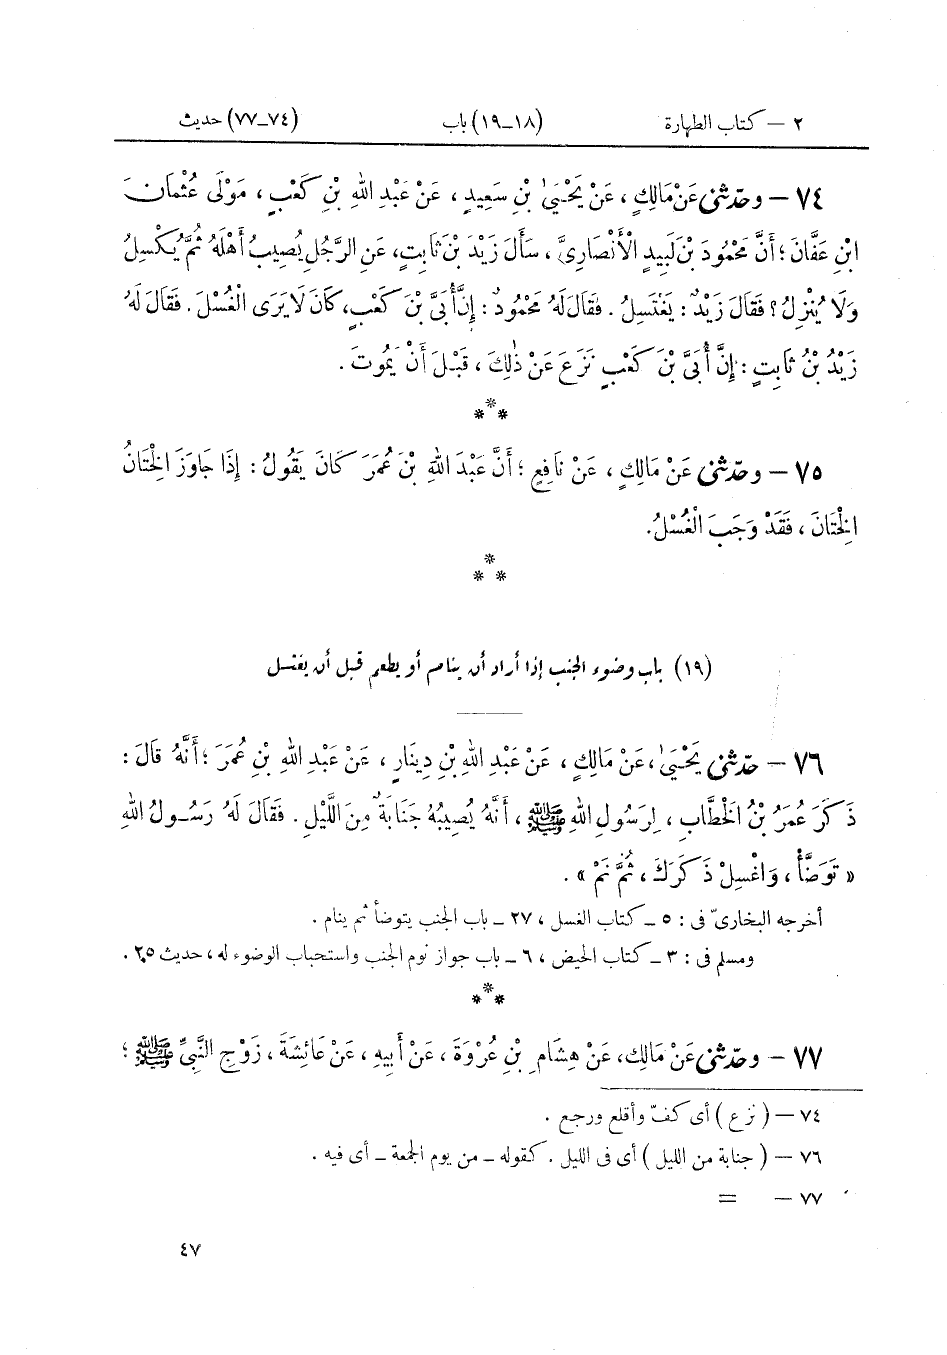 ٢ – كتاب الطهارة (١٨_١٩) باب (٧٤_٧٧) حديث
٧٤ – وحدّثنى عَنْ مَالِكٍ ، عَنْ يَحْيَىٰ بْنِ سَعِيدٍ ، عَنْ عَبْدِ اللهِ بْنِ كَعْبٍ ، مَوْلَى عُثْمَانَ
ابْنِ عَفَّانَ ؛ أَنَّ مَحْمُودَ بْنَ لَبِيدٍ الْأَنْصَارِيَّ ، سَأَلَ زَيْدَ بْنَ ثَابِتٍ، عَنِ الرَّجُلِ يُصِيبُ أَهْلَهُ ثُمَّ يُكْسِلُ
وَلَا يُنْزِلُ ؟ فَقَالَ زَيْدٌ : يَغْتَسِلُ . فَقَالَ لَهُ مَحْمُودٌ : إِنَّ أُبَيَّ بْنَ كَعْبٍ، كَانَ لَا يَرَى الْغُسْلَ . فَقَالَ لَهُ
زَيْدُ بْنُ ثَابِتٍ : إِنَّ أُبَيَّ بْنَ كَعْبٍ نَزَعَ عَنْ ذٰلِكَ ، قَبْلَ أَنْ يَمُوتَ .
* * *
٧٥ – وحدّثنى عَنْ مَالِكٍ ، عَنْ نَافِعٍ ؛ أَنَّ عَبْدَ اللهِ بْنَ عُمَرَ كَانَ يَقُولُ : إِذَا جَاوَزَ الْخِتَانُ
الْخِتَانَ ، فَقَدْ وَجَبَ الْغُسْلُ.
* * *
(١٩) باب وضوء الجنب إذا أراد أن ينام أو يطعم قبل أن يغتسل
٧٦ – حدّثنى يَحْيَىٰ ، عَنْ مَالِكٍ ، عَنْ عَبْدِ اللهِ بْنِ دِينَارٍ ، عَنْ عَبْدِ اللهِ بْنِ عُمَرَ ؛ أَنَّهُ قَالَ :
ذَكَرَ عُمَرُ بْنُ الْخَطَّابِ ، لِرَسُولِ اللهِ ﷺ ، أَنَّهُ يُصِيبُهُ جَنَابَةٌ مِنَ اللَّيْلِ . فَقَالَ لَهُ رَسُولُ اللهِ
« تَوَضَّأْ ، وَاغْسِلْ ذَكَرَكَ ، ثُمَّ نَمْ » .
أخرجه البخارىّ فى : ٥ _ كتاب الغسل ، ٢٧ _ باب الجنب يتوضأ ثم ينام .
ومسلم فى : ٣ _ كتاب الحيض ، ٦ _ باب جواز نوم الجنب واستحباب الوضوء له ، حديث ٢٥ .
* * *
٧٧ – وحدّثنى عَنْ مَالِكٍ، عَنْ هِشَامِ بْنِ عُرْوَةَ ، عَنْ أَبِيهِ ، عَنْ عَائِشَةَ ، زَوْجِ النَّبِيِّ ﷺ ؛
٧٤ – ( نزع ) أى كفّ وأقلع ورجع .
٧٦ – ( جنابة من الليل ) أى فى الليل . كقوله _ من يوم الجمعة _ أى فيه .
٧٧ – =
٤٧